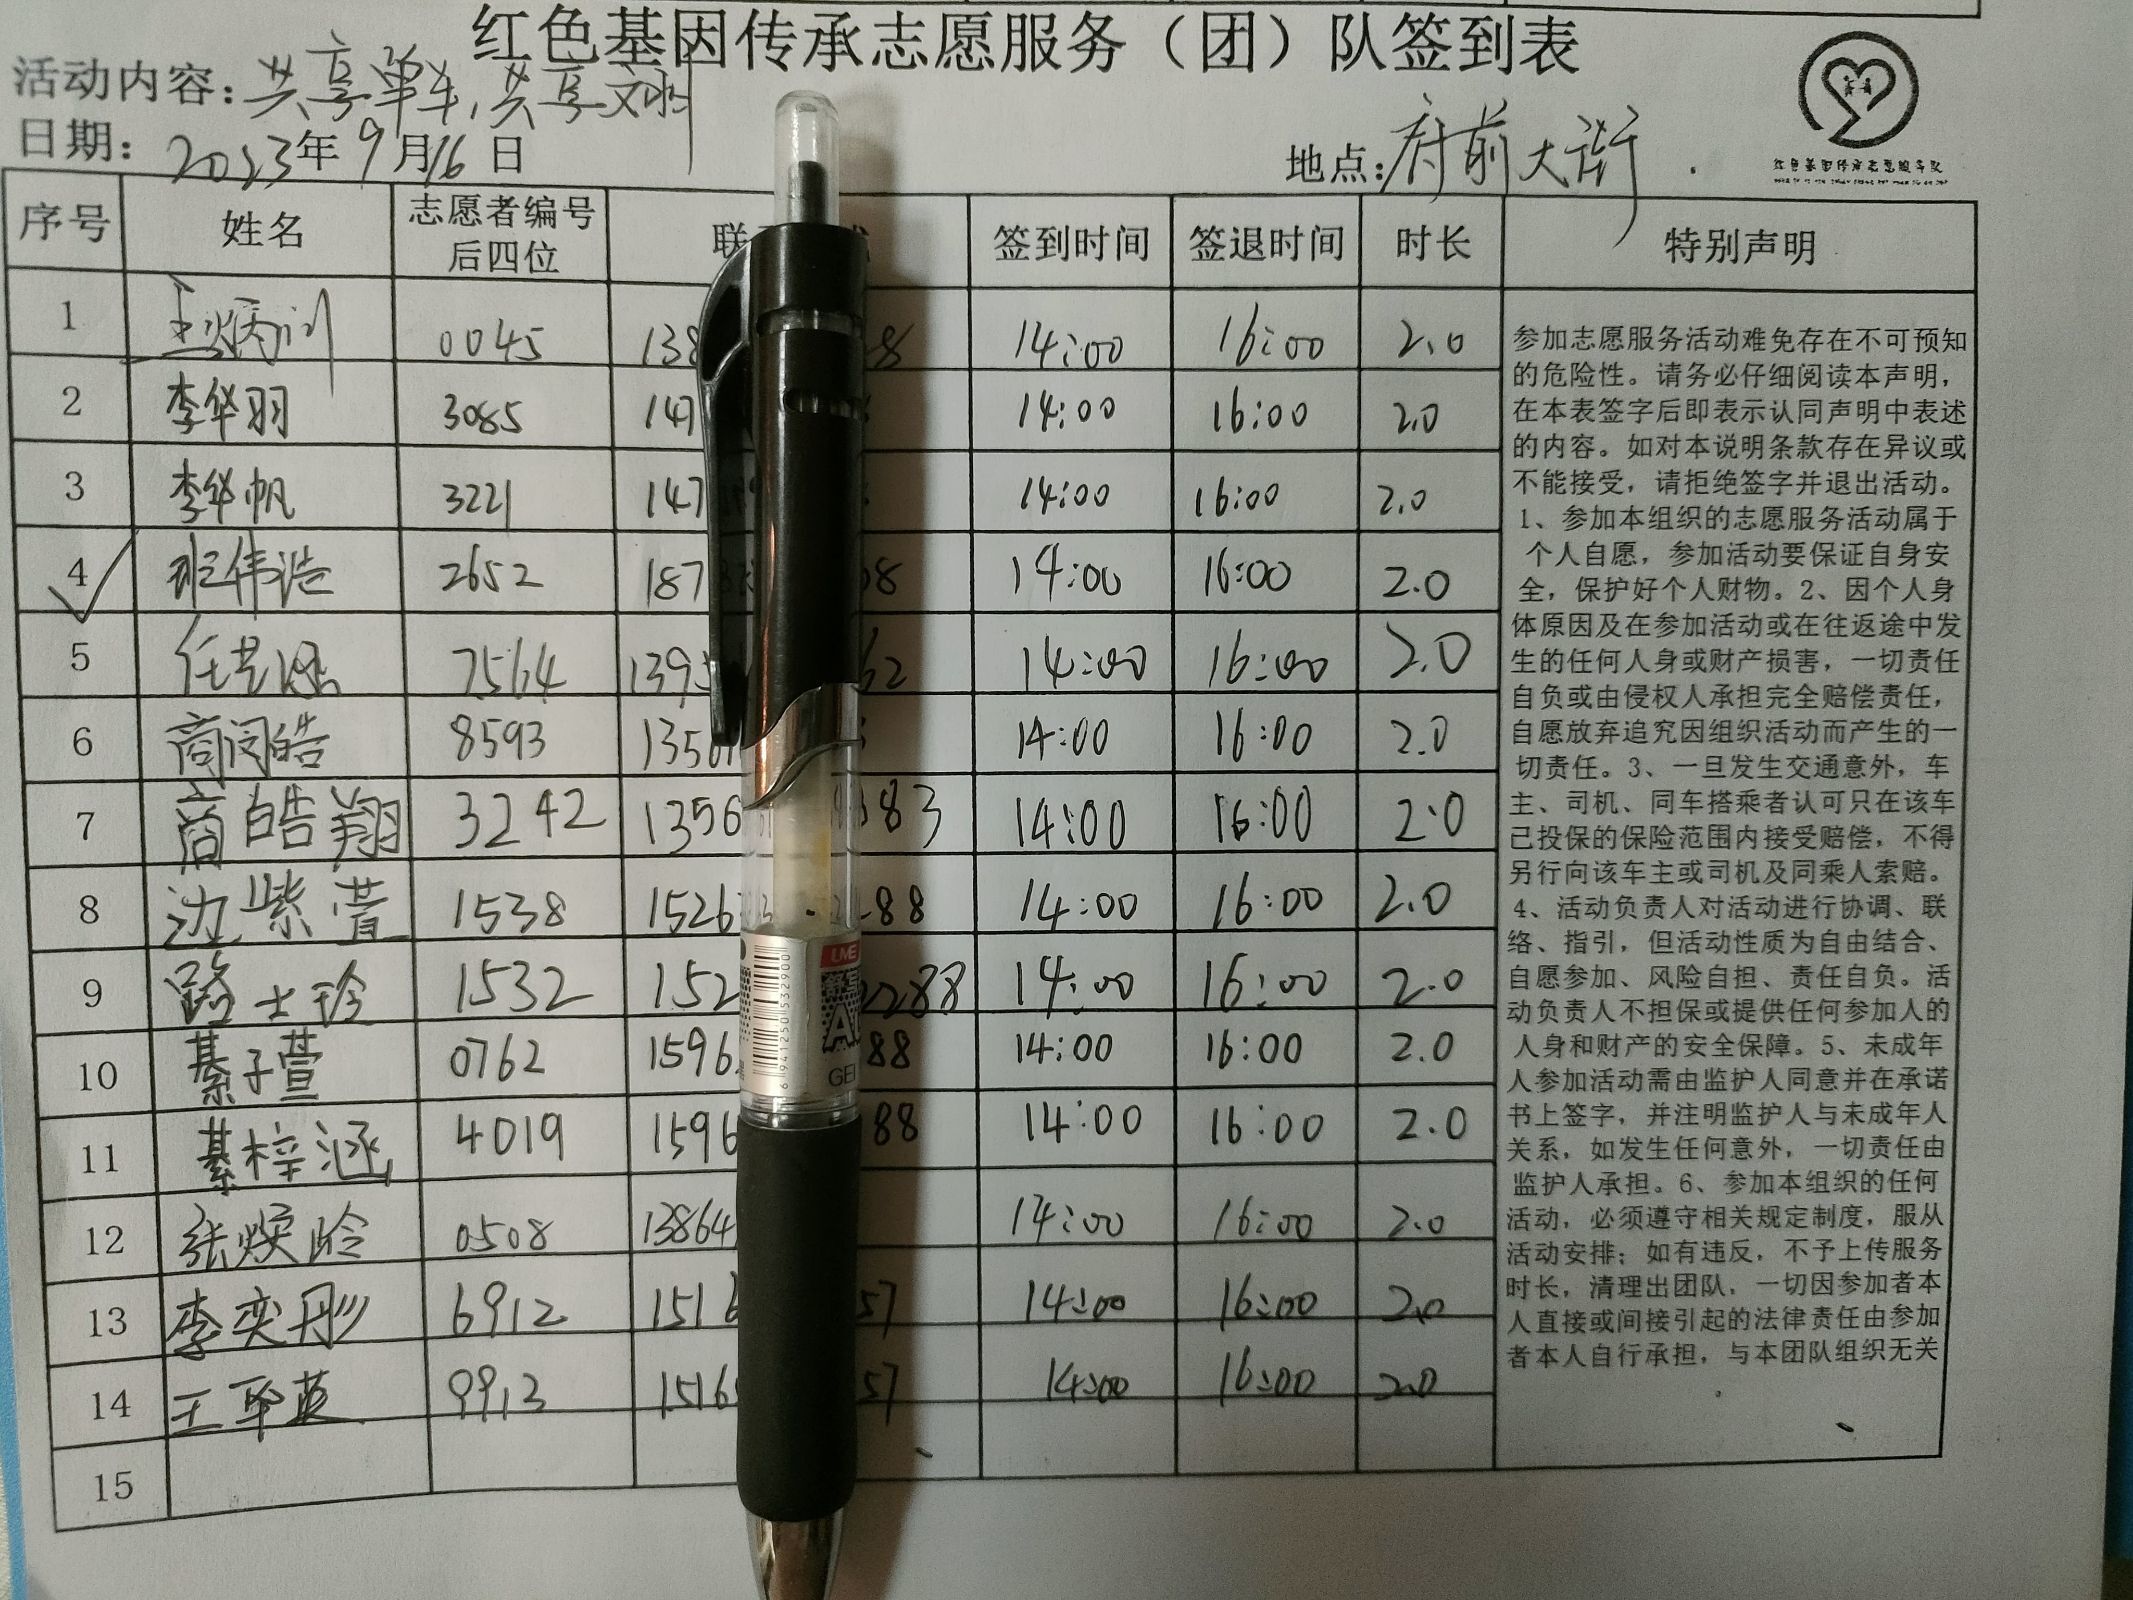 红色基因传承志愿服务（团）队签到表
活动内容：共享单车，共享文明
日期：2023年9月16日
地点：府前大街
红色基因传承志愿服务队
序号 姓名 志愿者编号后四位 联 签到时间 签退时间 时长 特别声明
1 王炳训 0045 138 8 14:00 16:00 2.0
2 李华羽 3085 147 14:00 16:00 2.0
3 李华帆 3221 147 14:00 16:00 2.0
4 班伟浩 2652 187 08 14:00 16:00 2.0
5 任艺 7564 139 62 14:00 16:00 2.0
6 商闵皓 8593 1356 14:00 16:00 2.0
7 商皓翔 3242 1356 383 14:00 16:00 2.0
8 边紫萱 1538 1526 288 14:00 16:00 2.0
9 路士珍 1532 152 2288 14:00 16:00 2.0
10 綦子萱 0762 1596 88 14:00 16:00 2.0
11 綦梓涵 4019 1596 88 14:00 16:00 2.0
12 张焕玲 0508 13864 14:00 16:00 2.0
13 李奕彤 6912 1516 57 14:00 16:00 2.0
14 王翠英 9913 1516 57 14:00 16:00 2.0
15
参加志愿服务活动难免存在不可预知
的危险性。请务必仔细阅读本声明，
在本表签字后即表示认同声明中表述
的内容。如对本说明条款存在异议或
不能接受，请拒绝签字并退出活动。
1、参加本组织的志愿服务活动属于
个人自愿，参加活动要保证自身安
全，保护好个人财物。2、因个人身
体原因及在参加活动或在往返途中发
生的任何人身或财产损害，一切责任
自负或由侵权人承担完全赔偿责任，
自愿放弃追究因组织活动而产生的一
切责任。3、一旦发生交通意外，车
主、司机、同车搭乘者认可只在该车
已投保的保险范围内接受赔偿，不得
另行向该车主或司机及同乘人索赔。
4、活动负责人对活动进行协调、联
络、指引，但活动性质为自由结合、
自愿参加、风险自担、责任自负。活
动负责人不担保或提供任何参加人的
人身和财产的安全保障。5、未成年
人参加活动需由监护人同意并在承诺
书上签字，并注明监护人与未成年人
关系，如发生任何意外，一切责任由
监护人承担。6、参加本组织的任何
活动，必须遵守相关规定制度，服从
活动安排；如有违反，不予上传服务
时长，清理出团队，一切因参加者本
人直接或间接引起的法律责任由参加
者本人自行承担，与本团队组织无关
6941250532900
GE